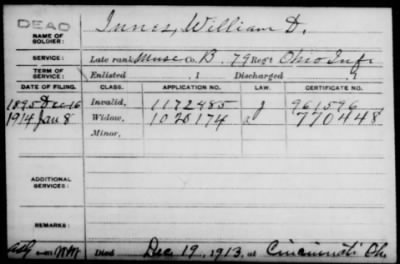 DEAD
NAME OF SOLDIER: Innes, William D.
SERVICE: Late rank Musc Co. B. 79 Reg't Ohio Inf.
TERM OF SERVICE: Enlisted , 1 Discharged , 1
DATE OF FILING. CLASS. APPLICATION NO. LAW. CERTIFICATE NO.
1895 Dec 16 Invalid, 1172485 J 961596
1914 Jan 8 Widow, 1020174 770448
Minor,
ADDITIONAL SERVICES:
REMARKS:
Died Dec 19, 1913, at Cincinnati Oh.